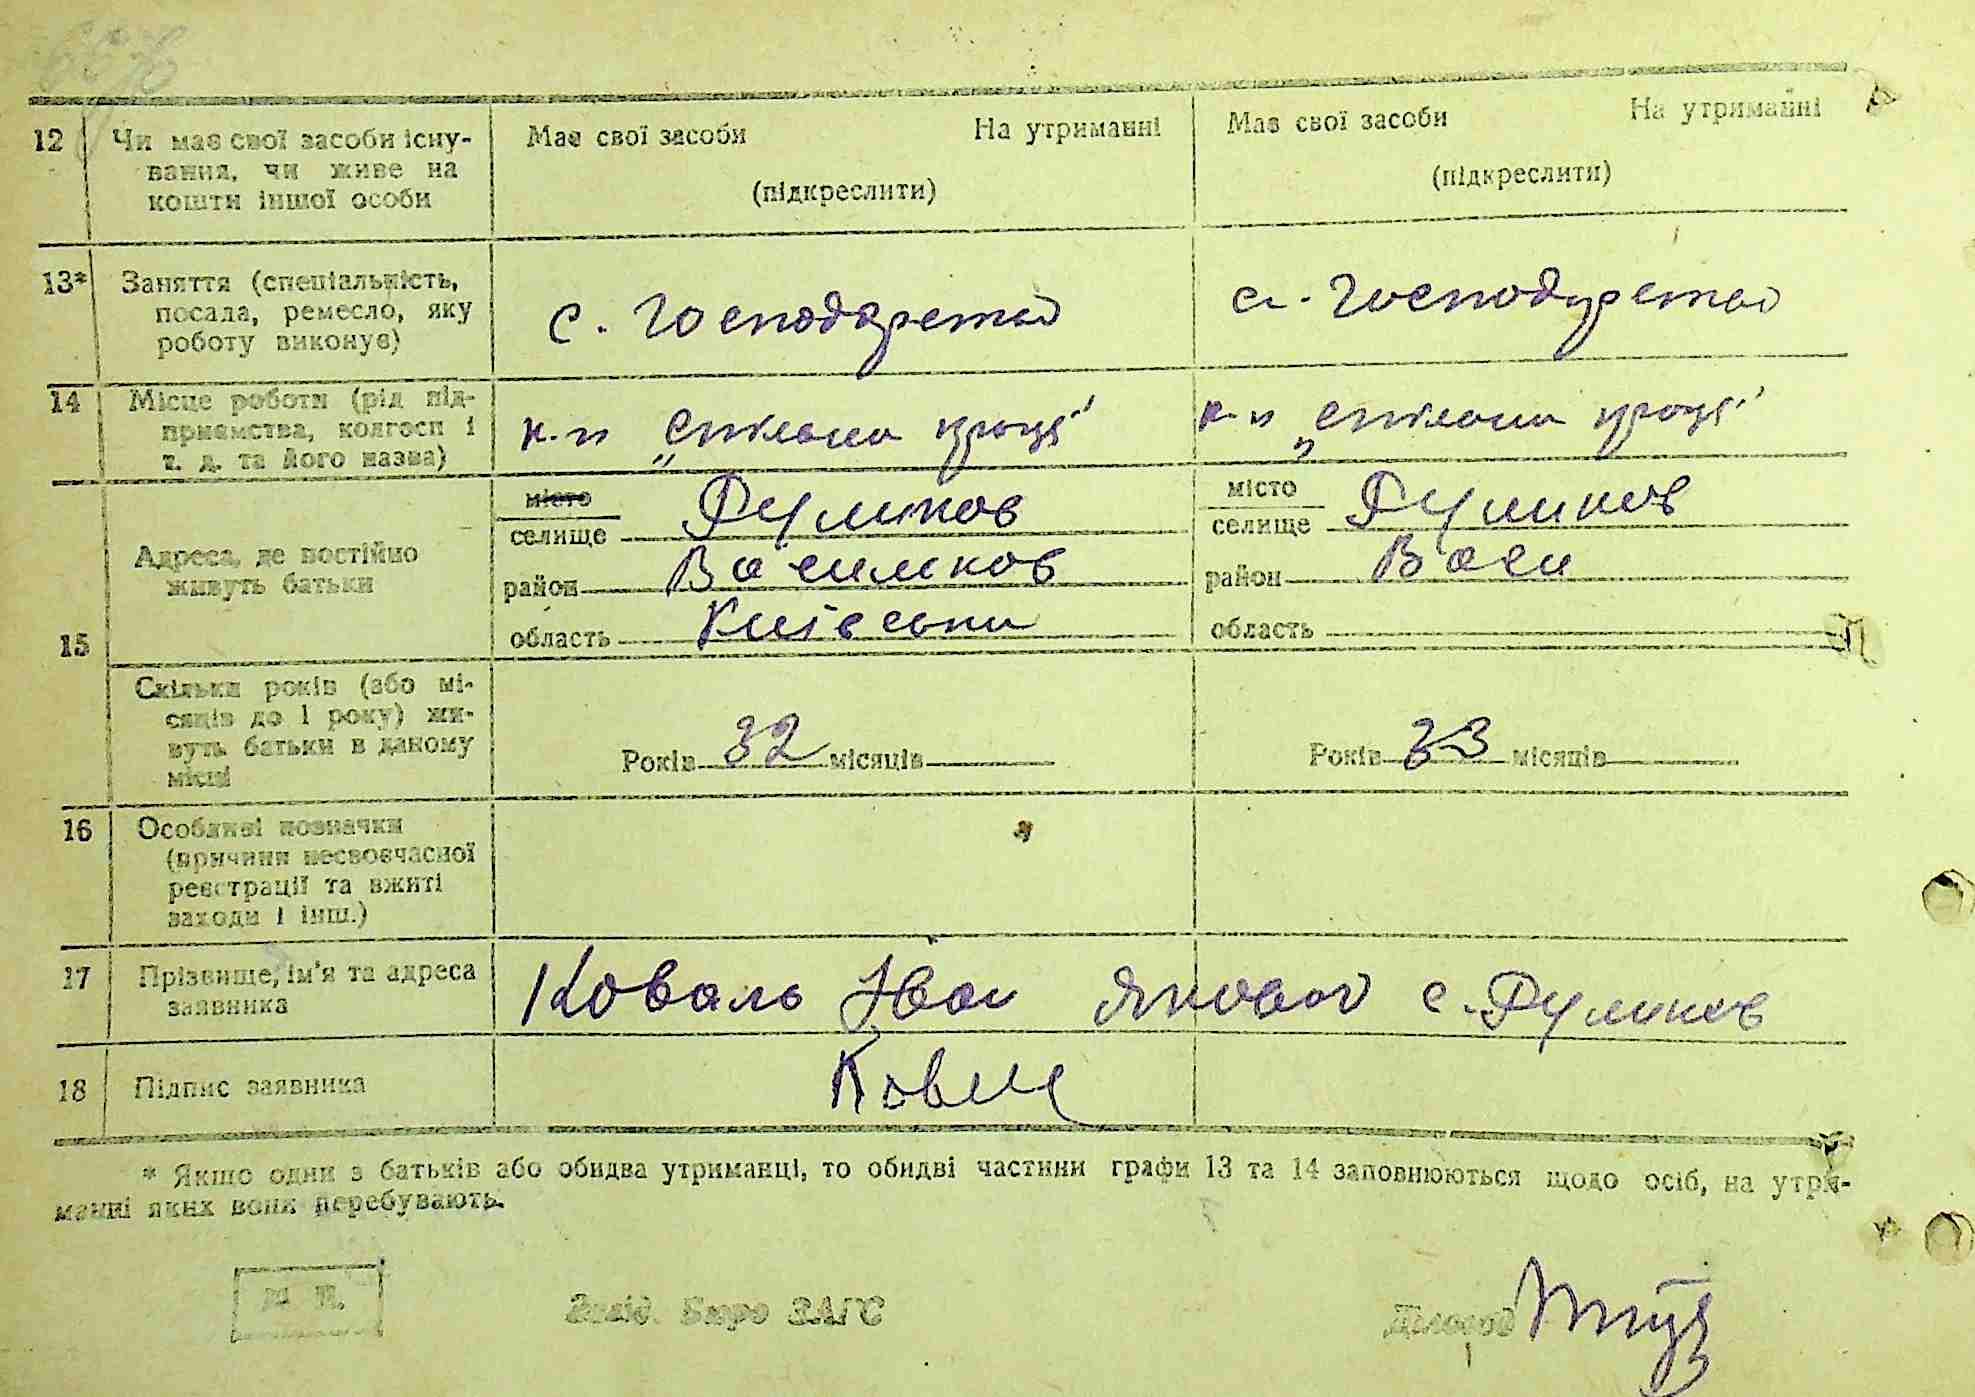 12 Чи має свої засоби існу-
вання, чи живе на
кошти іншої особи
Має свої засоби На утриманні
(підкреслити)
Має свої засоби На утриманні
(підкреслити)
13* Заняття (спеціальність,
посада, ремесло, яку
роботу виконує)
с. господарство
с. господарство
14 Місце роботи (рід під-
приємства, колгосп і
т. д. та його назва)
к-п „Спільна праця"
к-п „Спільна праця"
15 Адреса, де постійно
живуть батьки
місто
селище Дуликов
район Васильков
область Київська
місто
селище Дуликов
район Васи
область
Скільки років (або мі-
сяців до 1 року) жи-
вуть батьки в даному
місці
Років 32 місяців
Років 33 місяців
16 Особливі позначки
(причини несвоєчасної
реєстрації та вжиті
заходи і інш.)
17 Прізвище, ім'я та адреса
заявника
Коваль Іван Якович с. Дуликов
18 Підпис заявника
* Якщо один з батьків або обидва утриманці, то обидві частини графи 13 та 14 заповнюються щодо осіб, на утри-
манні яких вони перебувають.
М. П.
Завід. Бюро ЗАГС
Діловод